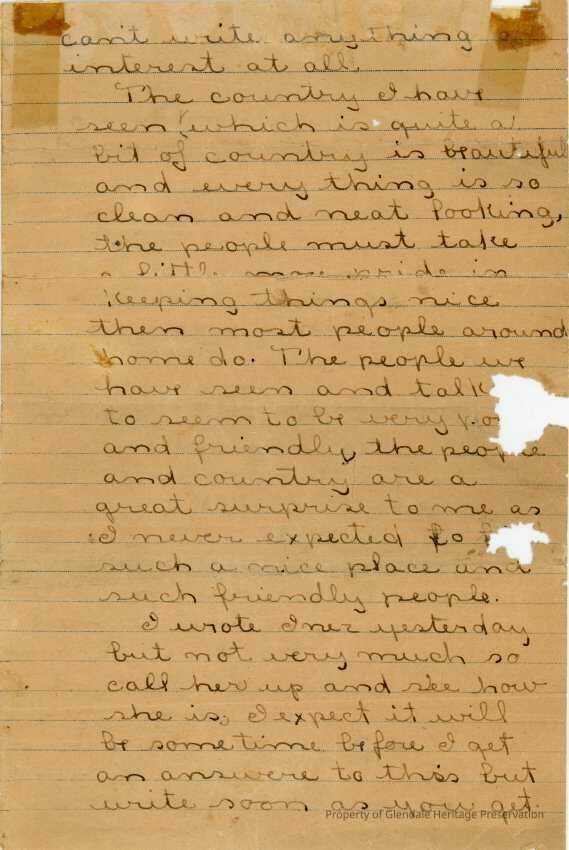 can't write anything
interest at all.
The country I have
seen which is quite a
bit of country is beautiful
and every thing is so
clean and neat looking,
the people must take
a little more pride in
keeping things nice
then most people around
home do. The people we
have seen and talk
to seem to be very
and friendly, the people
and country are a
great surprise to me as
I never expected to
such a nice place and
such friendly people.
I wrote Inez yesterday
but not very much so
call her up and see how
she is, I expect it will
be sometime before I get
an answere to this but
write soon as you get.
Property of Glendale Heritage Preservation